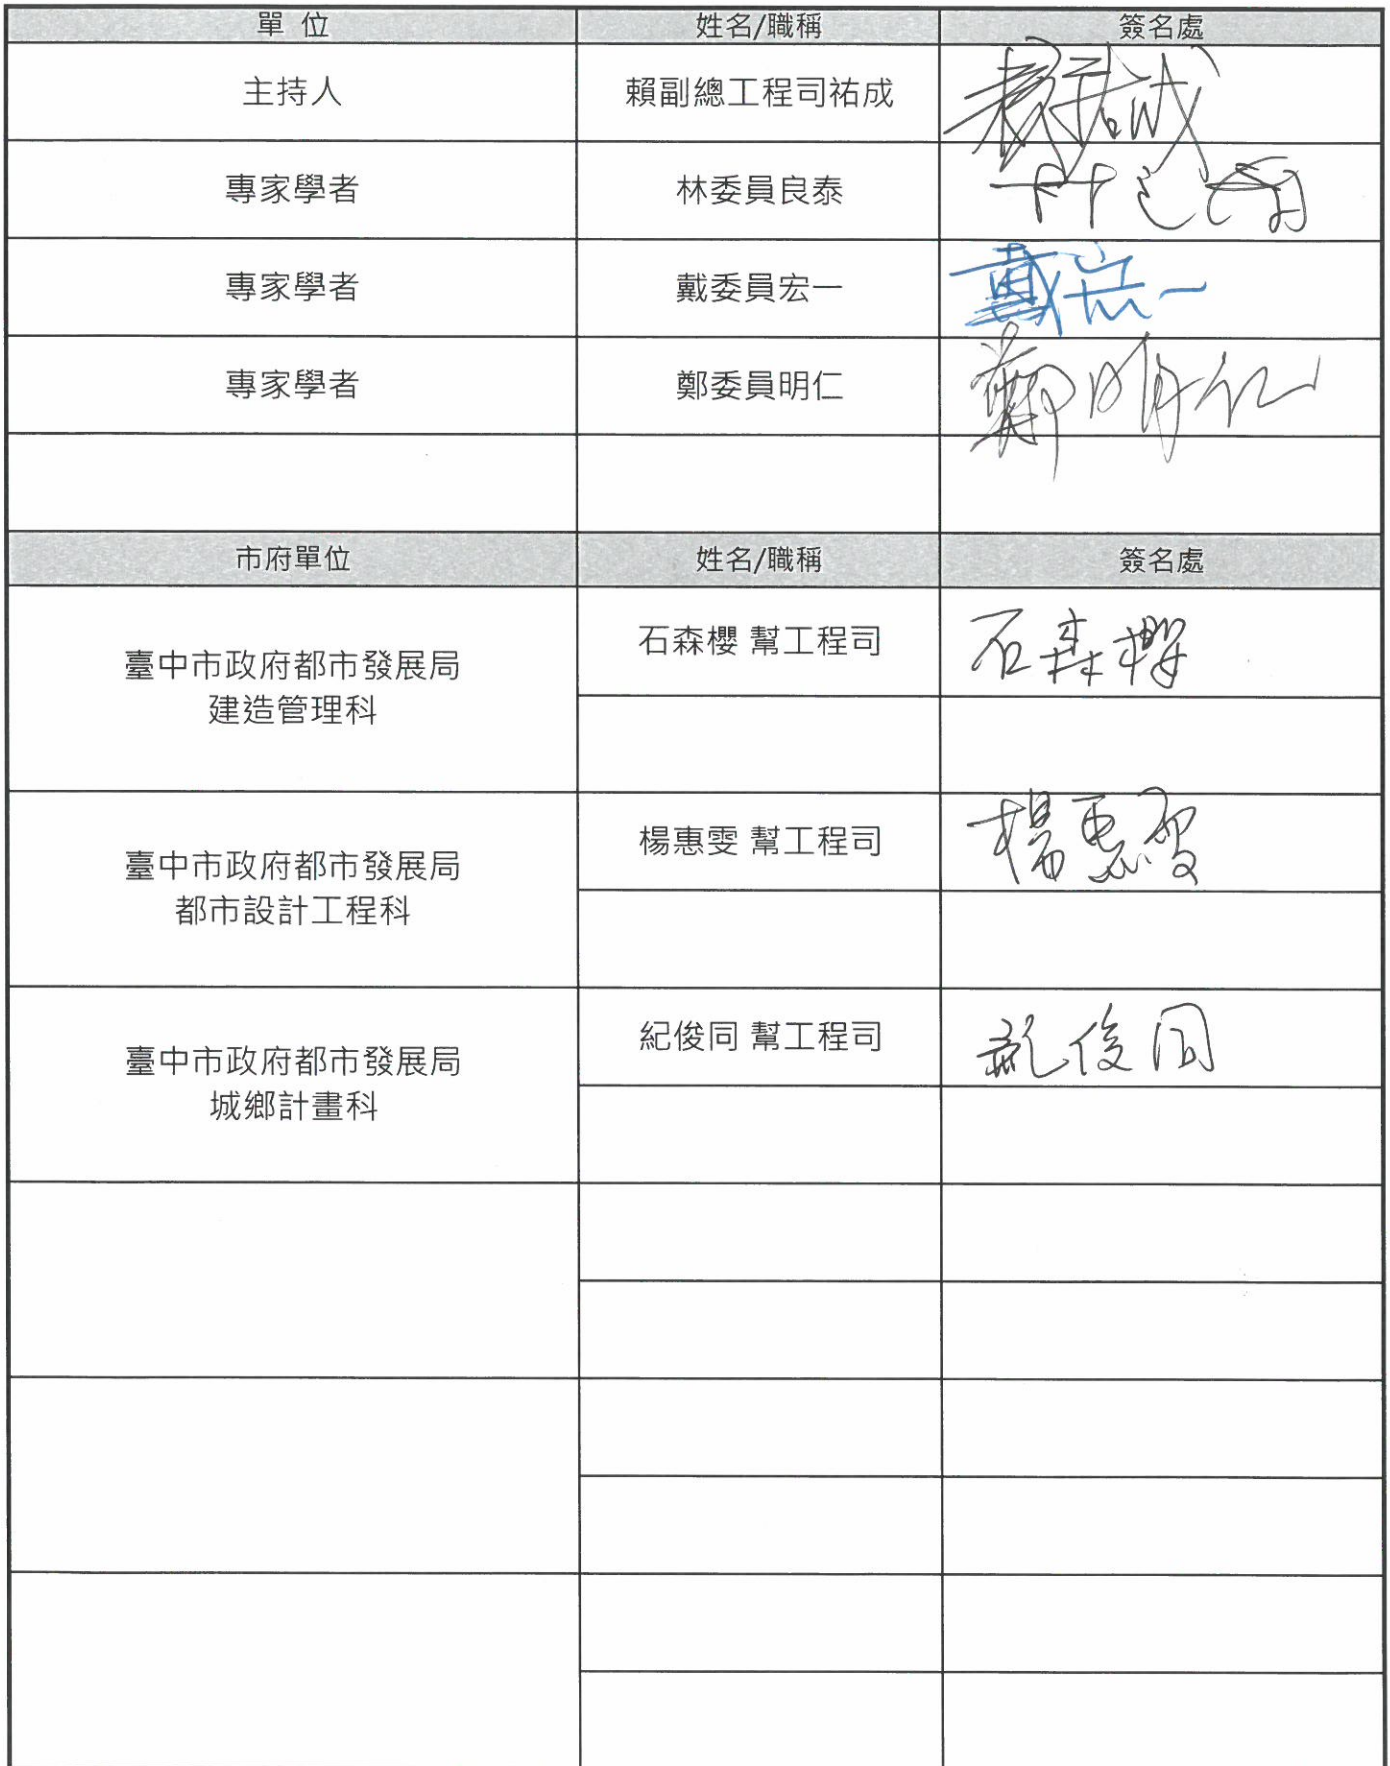 單 位 姓名/職稱 簽名處
主持人 賴副總工程司祐成 賴祐成
專家學者 林委員良泰
專家學者 戴委員宏一 戴宏一
專家學者 鄭委員明仁 鄭明仁
市府單位 姓名/職稱 簽名處
臺中市政府都市發展局
建造管理科
石森櫻 幫工程司 石森櫻
臺中市政府都市發展局
都市設計工程科
楊惠雯 幫工程司 楊惠雯
臺中市政府都市發展局
城鄉計畫科
紀俊同 幫工程司 紀俊同